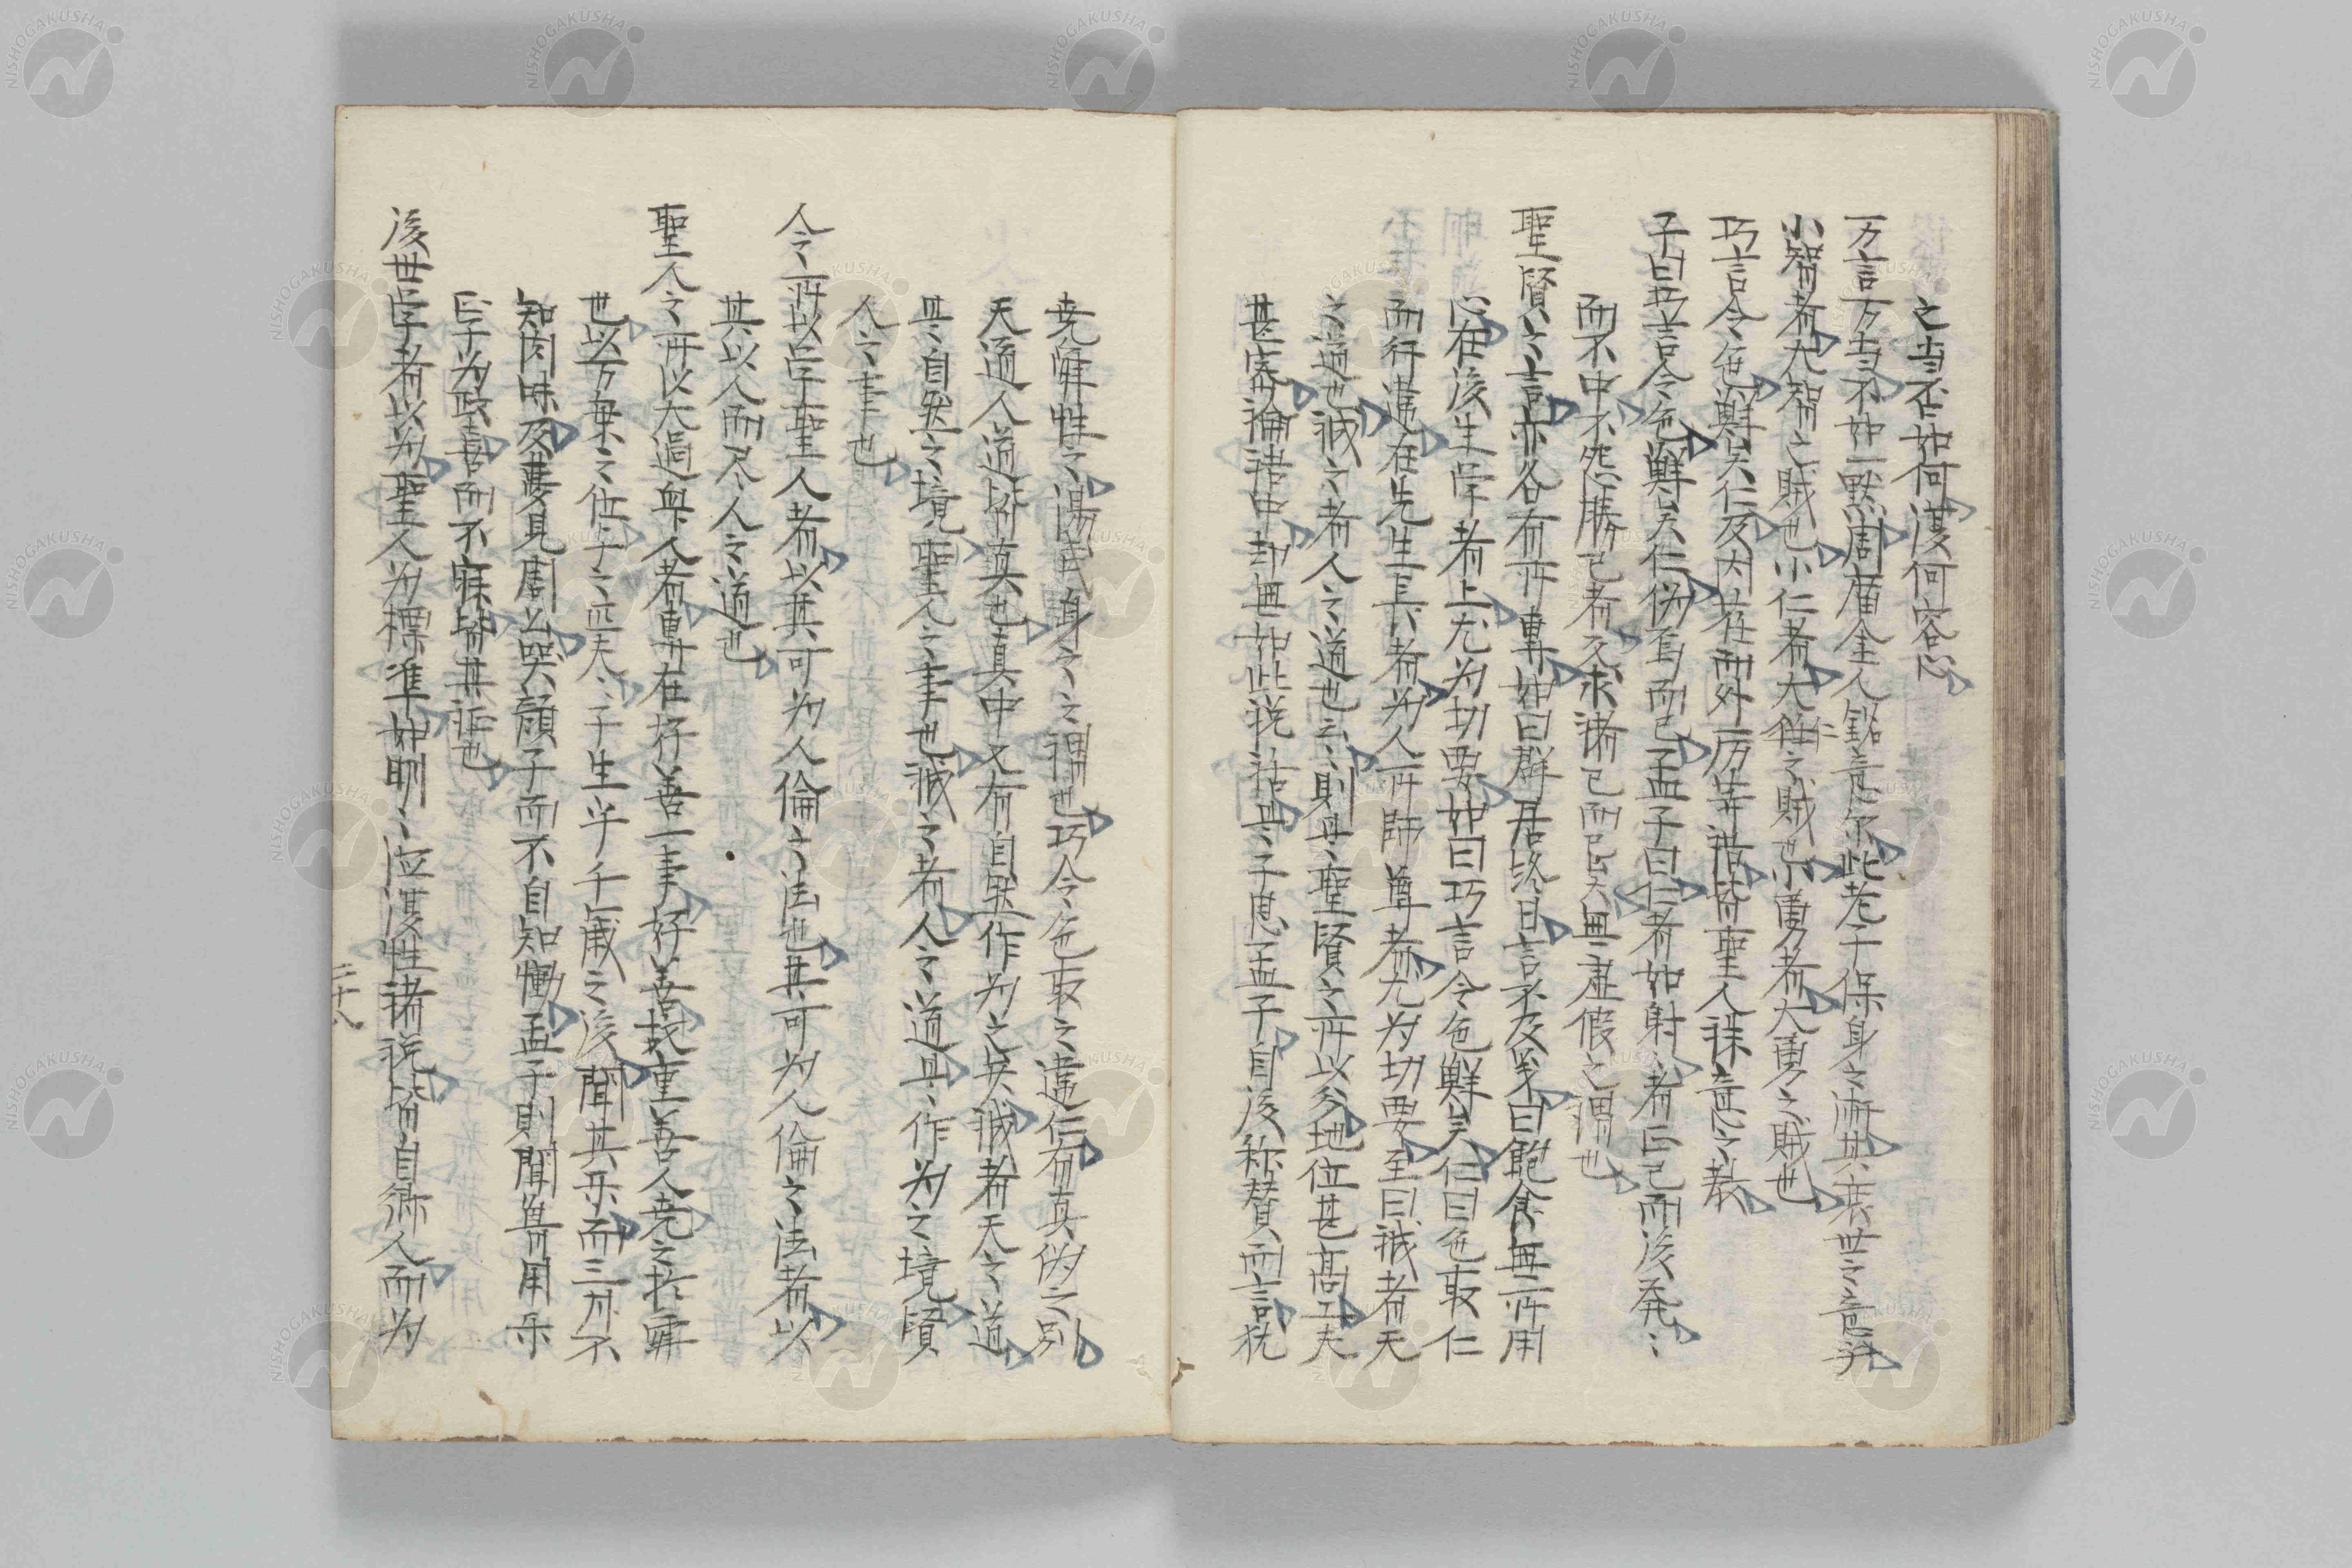 之当否如何渂何容心
万言万当不如一黙周庿金人銘意尔此老子保身之漸其衰世之意欤
小智者大智之賊也小仁者大仁之賊也小勇者大勇之賊也
巧言令色鮮矣仁及内荏而外厉等語皆聖人誅意之教
子曰巧言令色鮮矣仁伪焉而已孟子曰仁者如射ミ者正己而後発ミ
而不中不怨勝己者反求諸己而已矣無虚假之謂也
聖賢之言亦各有所専如曰群居終日言不及义曰飽食無所用
心在後生学者上尤为切要如曰巧言令色鮮矣仁曰色取仁
而行違在先生長者为人所師尊者尤为切要至曰誠者天
之道也誠之者人之道也云則毎ミ聖賢之所以分地位甚高工夫
甚密論語中却無如此説話毎ミ子思孟子自後称賛而言犹
尭舜性之湯武身之之謂也巧令色取之違仁有真伪之別
天道人道皆真也真中又有自然作为之矣誠者天之道
毎ミ自然之境聖人之事也誠之者人之道毎ミ作为之境賢
人之事也
人之所以学聖人者以其可为人倫之法也其可为人倫之法者以
其以人而尽人之道也
聖人之所以大過與人者専在好善一事好善故重善人尭之於舜
也以万乗之位下之匹夫夫子生乎千歳之後聞其楽而三月不
知肉味及夢見周公哭顔子而不自知慟孟子則聞魯用楽
正子为政喜而不寐皆其証也
後世学者以为聖人为標準如明ミ德復性諸説皆自術人而为
二十八
NISHOGAKUSHA